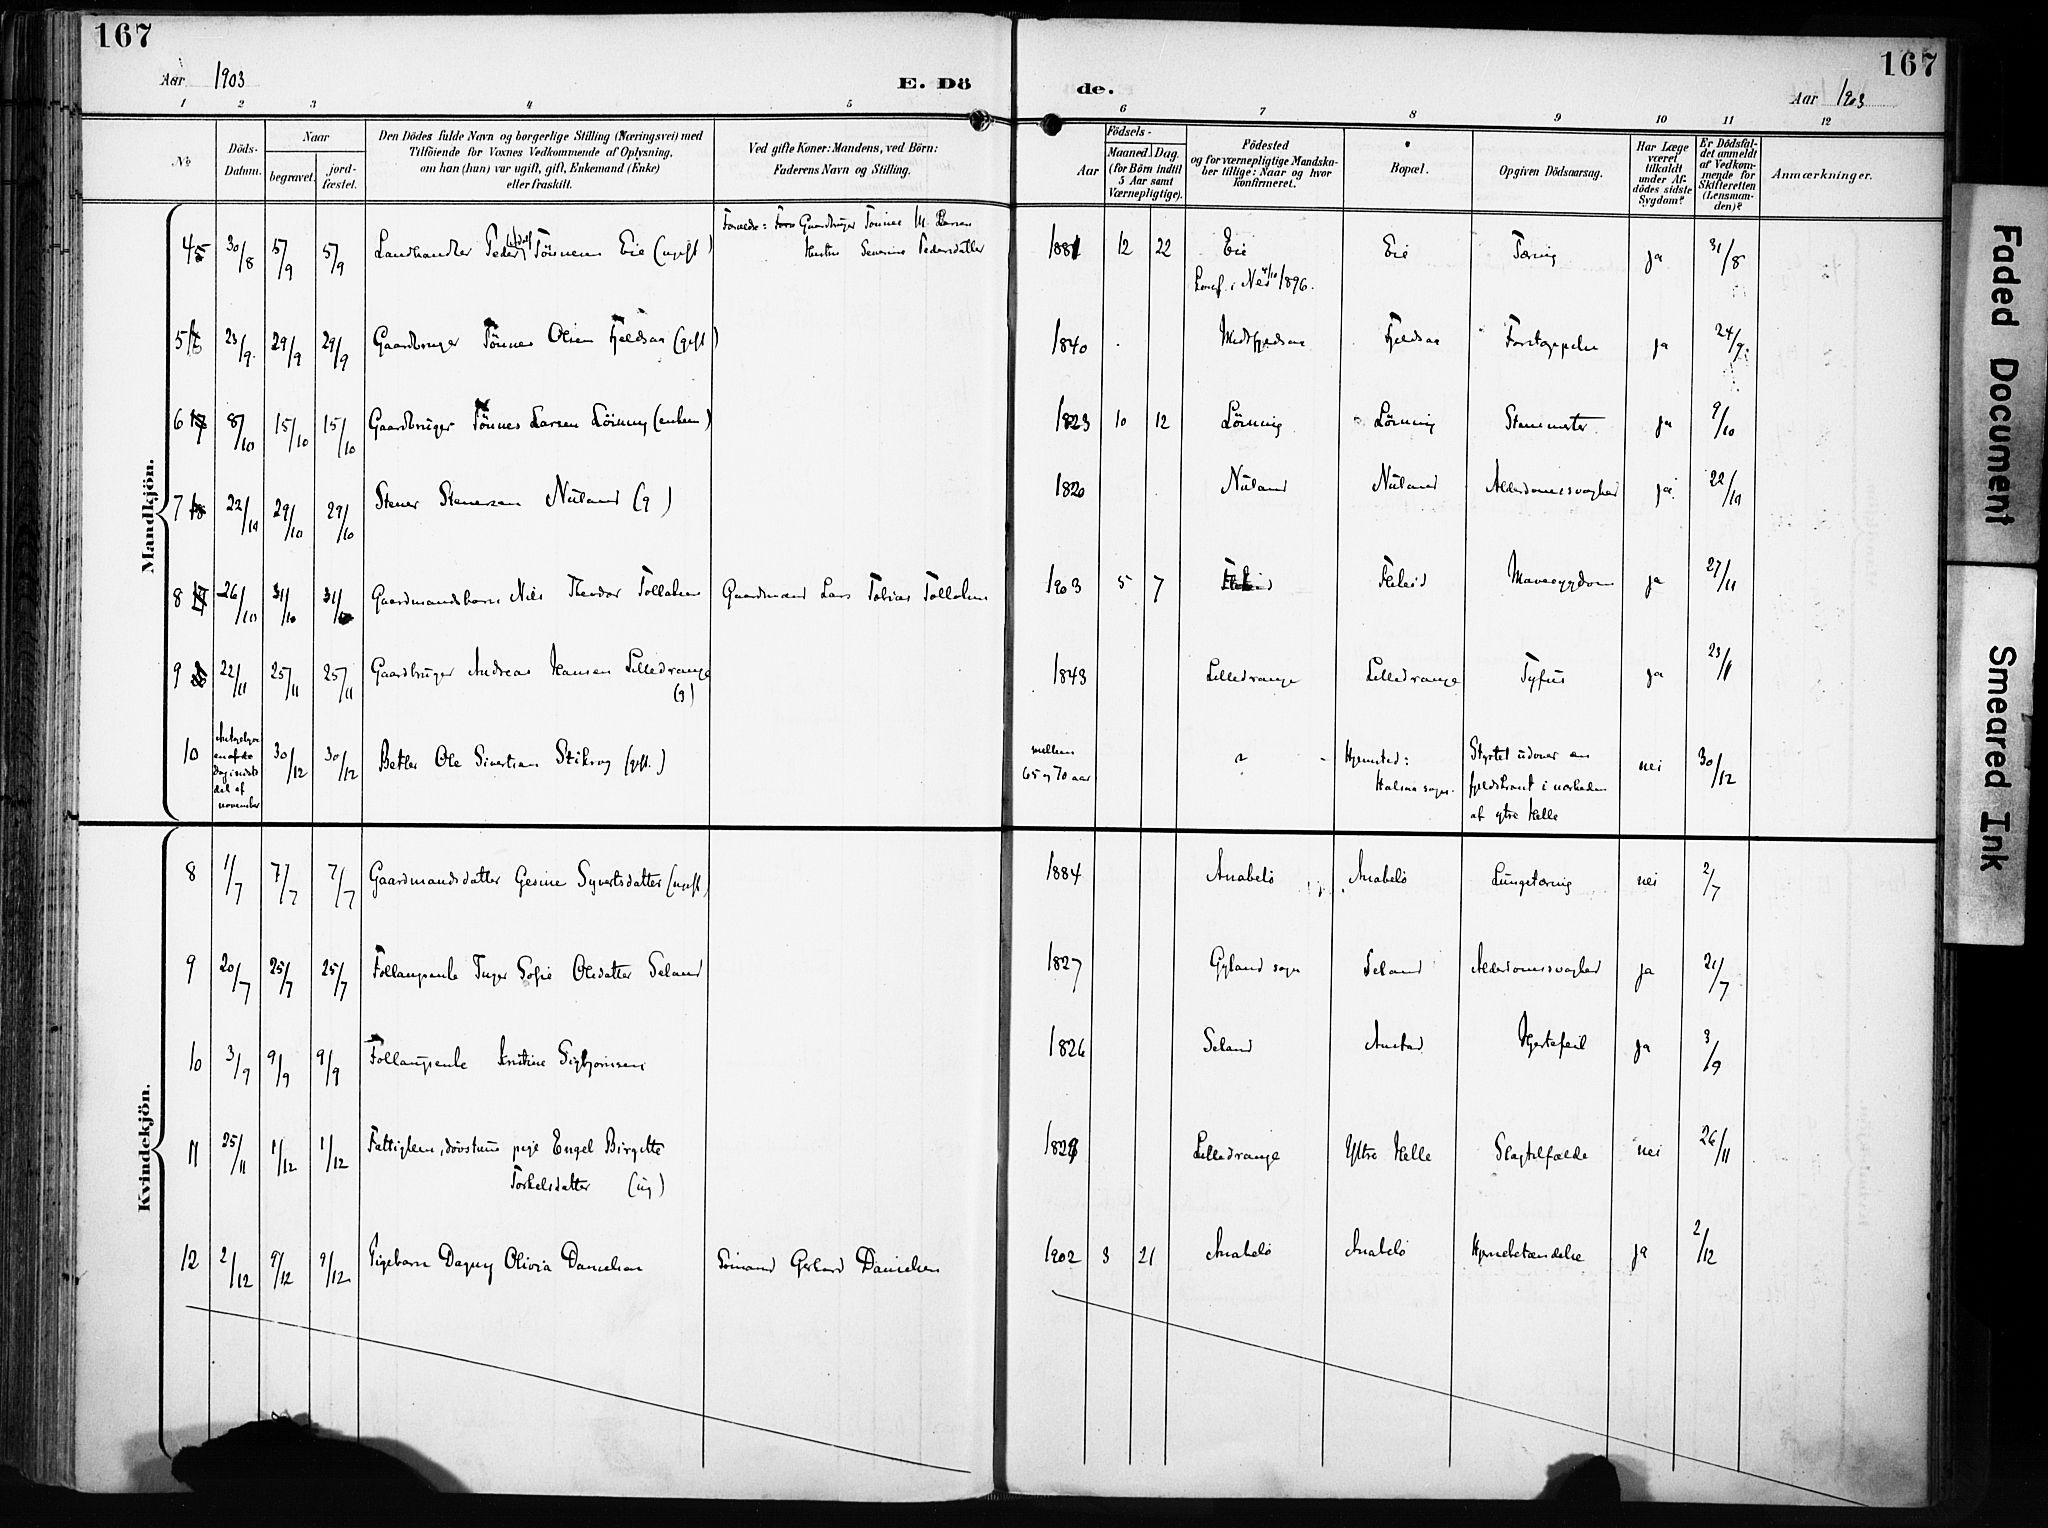 167
Aar 1903
E. Dö
1 2 3 4 5
No
Döds-
Datum.
Naar
begravet.
jord-
fæstet.
Den Dödes fulde Navn og borgerlige Stilling (Næringsvei) med
Tilföiende for Voxnes Vedkommende af Oplysning.
om han (hun) var ugift, gift, Enkemand (Enke)
eller fraskilt.
Ved gifte Koner: Mandens, ved Börn:
Faderens Navn og Stilling.
167
de.
Aar 1903
6 7 8 9 10 11 12
Födsels-
Aar
Maaned. Dag.
(for Börn indtil
5 Aar samt
Værnepligtige).
Födested
og for værnepligtige Mandska-
ber tillige: Naar og hvor
konfirmeret.
Bopæl.
Opgiven Dödsaarsag.
Har Læge
været
tilkaldt
under Af-
dödes sidste
Sygdom?
Er Dödsfal-
det anmeldt
af Vedkom-
mende for
Skifteretten
(Lensman-
den)?
Anmærkninger.
Mandkjön.
4 30/8 5/9 5/9 Landhandler Peder Tönnesen Eie (ugift) Gaardbruger Tönnes M. Hustru Severine Pedersdatter 1881 12 22 Eie Eie Tæring ja 31/8
Konf. i Nes 4/10 1896.
5 23/9 29/9 29/9 Gaardbruger Tönnes Olsen Fjeldsaa (gift) 1840 Midtfjeldsaa Fjeldsaa ja 24/9
6 8/10 15/10 15/10 Gaardbruger Tönnes Larsen Lörning (enkem) 1823 10 12 Lörning Lörning ja 9/10
7 22/10 29/10 29/10 Stener Stenersen Nuland (g) 1820 Nuland Nuland Alderdomssvaghed ja 22/10
8 26/10 31/10 31/10 Gaardmandsbarn Nils Theodor Tollaksen Gaardmand Lars Tobias Tollaksen 1903 5 7 Mavesygdom ja 27/11
9 22/11 25/11 25/11 Gaardbruger Andreas Hansen Lilledrange 1843 Lilledrange Lilledrange Tyfus ja 23/11
(g)
10 en af de Dag i sidste del af november 30/12 30/12 Betler Ole Sivertsen (gift.) mellem 65 og 70 aar ? Hjemsted: Halsaa sogn. Styrtet udover en fjeldskrænt i nærheden af ytre Helle nei 30/12
Kvindekjön.
8 1/7 7/7 7/7 Gaardmandsdatter Gesine Syvertsdatter (ugift) 1884 Anabelö Anabelö Lungetæring nei 2/7
9 20/7 25/7 25/7 Follaugsenke Inger Sofie Olsdatter Seland 1827 Gyland sogn Seland Alderdomssvaghed ja 21/7
10 3/9 9/9 9/9 Follaugsenke 1826 Seland Anstad Hjertefeil ja 3/9
11 25/11 1/12 1/12 Fattiglem, dövstum pige Engel Birgitte 1829 Lilledrange Ytre Helle Slagtilfælde nei 26/11
Torkelsdatter (ug)
12 2/12 9/12 9/12 Pigebarn Dagny Olivia Danielsen Sömand Gerhard Danielsen 1902 3 21 Anabelö Anabelö Hjernebetændelse ja 2/12
Faded Document
Smeared Ink